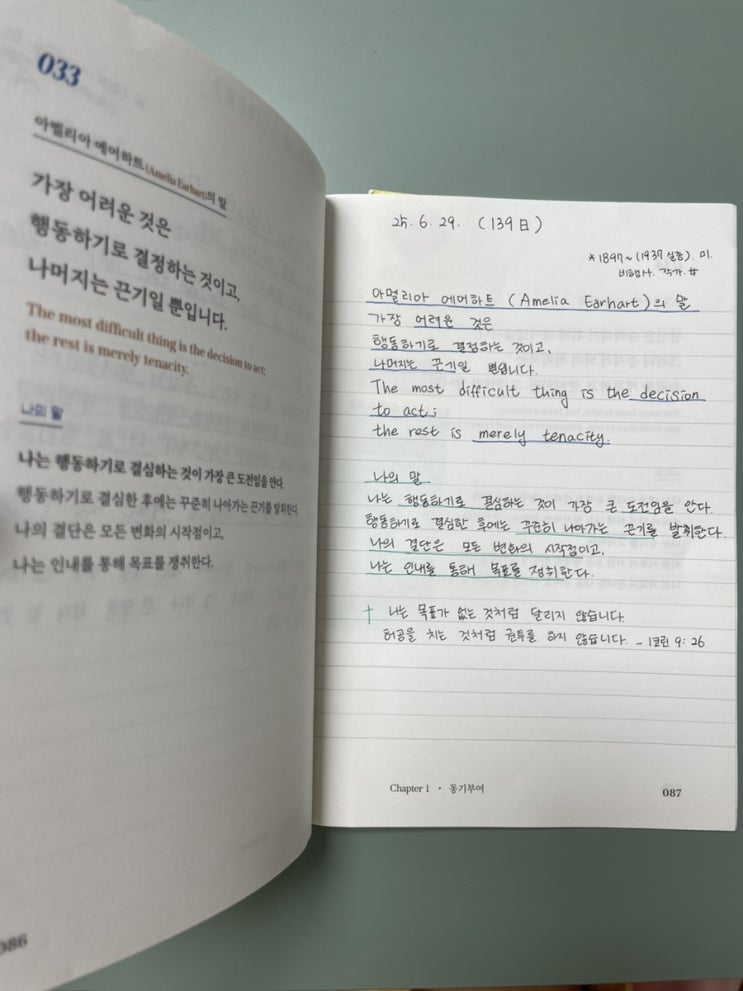 033
아멜리아 에어하트(Amelia Earhart)의 말
가장 어려운 것은
행동하기로 결정하는 것이고,
나머지는 끈기일 뿐입니다.
The most difficult thing is the decision to act;
the rest is merely tenacity.
나의 말
나는 행동하기로 결심하는 것이 가장 큰 도전임을 안다.
행동하기로 결심한 후에는 꾸준히 나아가는 끈기를 발휘한다.
나의 결단은 모든 변화의 시작점이고,
나는 인내를 통해 목표를 쟁취한다.
086
25. 6. 29. (139日)
* 1897~(1937 실종). 미.
비행사. 작가. 女
아멀리아 에어하트 (Amelia Earhart)의 말
가장 어려운 것은
행동하기로 결정하는 것이고,
나머지는 끈기일 뿐입니다.
The most difficult thing is the decision
to act;
the rest is merely tenacity.
나의 말
나는 행동하기로 결심하는 것이 가장 큰 도전임을 안다.
행동하기로 결심한 후에는 꾸준히 나아가는 끈기를 발휘한다.
나의 결단은 모든 변화의 시작점이고,
나는 인내를 통해 목표를 쟁취한다.
† 나는 목표가 없는 것처럼 달리지 않습니다.
허공을 치는 것처럼 권투를 하지 않습니다. - 1코린 9:26
Chapter 1 · 동기부여
087